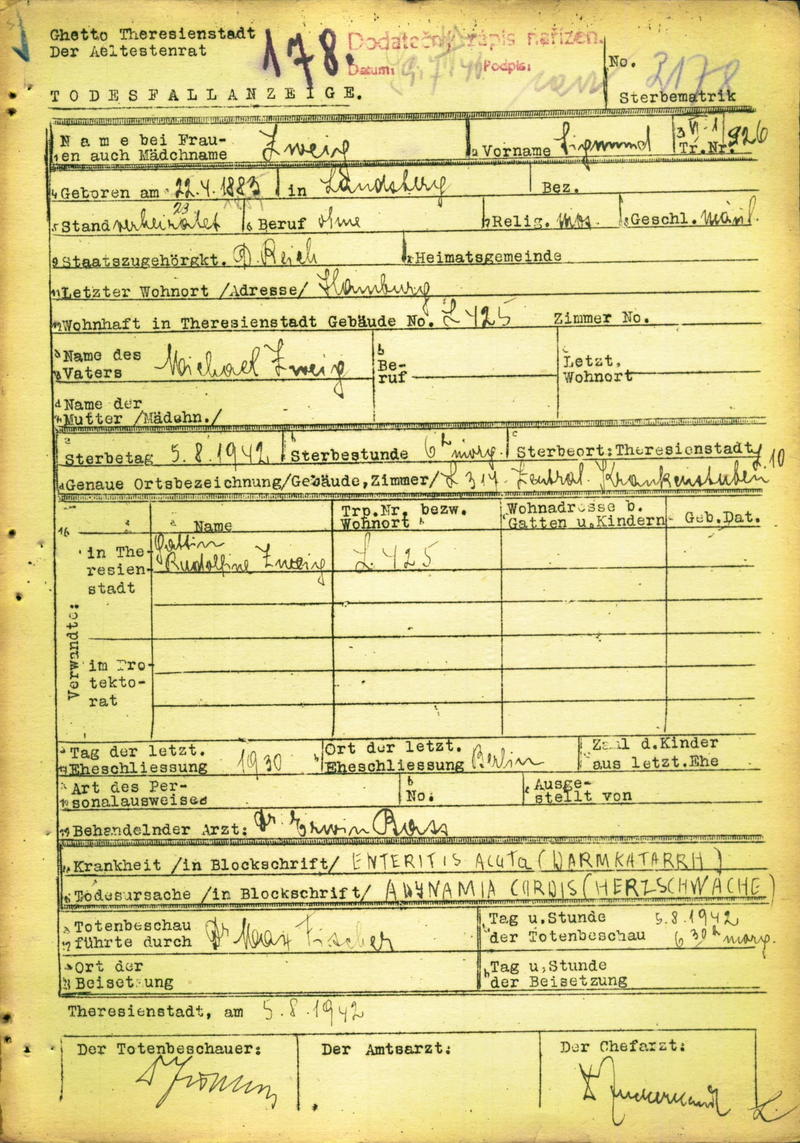 Ghetto Theresienstadt
Der Aeltestenrat
178.
Dodatečný zápis nařízen.
Datum: Podpis:
No. 3178
Sterbematrik
TODESFALLANZEIGE.
Name bei Frau-
en auch Mädchname Zweig Vorname Sigmund VI-1 Tr.Nr. 926
Geboren am 22.4.1883 in Landsberg Bez.
23
Stand verheiratet Beruf ohne Relig. mos. Geschl. männl.
Staatszugehörgkt. D. Reich Heimatsgemeinde
Letzter Wohnort /Adresse/ Hamburg
Wohnhaft in Theresienstadt Gebäude No. L 425 Zimmer No.
Name des
Vaters Michael Zweig Be-
ruf Letzt.
Wohnort
Name der
Mutter /Mädchn./
Sterbetag 5.8.1942 Sterbestunde 6h morg. Sterbeort: Theresienstadt
Genaue Ortsbezeichnung/Gebäude, Zimmer/ L 317 Zentral. Krankenstuben 10
Name Trp.Nr. bezw.
Wohnort Wohnadresse b.
Gatten u. Kindern Geb.Dat.
Verwandte:
in The-
resien-
stadt
Gattin
Rudolfine Zweig L 425
im Pro-
tekto-
rat
Tag der letzt.
Eheschliessung 1930 Ort der letzt.
Eheschliessung Berlin Zahl d.Kinder
aus letzt.Ehe
Art des Per-
sonalausweises No. Ausge-
stellt von
Behandelnder Arzt: Dr. Erwin
Krankheit /in Blockschrift/ ENTERITIS ACUTA (DARMKATARRH)
Todesursache /in Blockschrift/ ADYNAMIA CORDIS (HERZSCHWÄCHE)
Totenbeschau
führte durch Dr Max Fischer Tag u. Stunde
der Totenbeschau 5.8.1942
6 30h morg.
Ort der
Beisetzung Tag u. Stunde
der Beisetzung
Theresienstadt, am 5.8.1942
Der Totenbeschauer: Der Amtsarzt: Der Chefarzt: